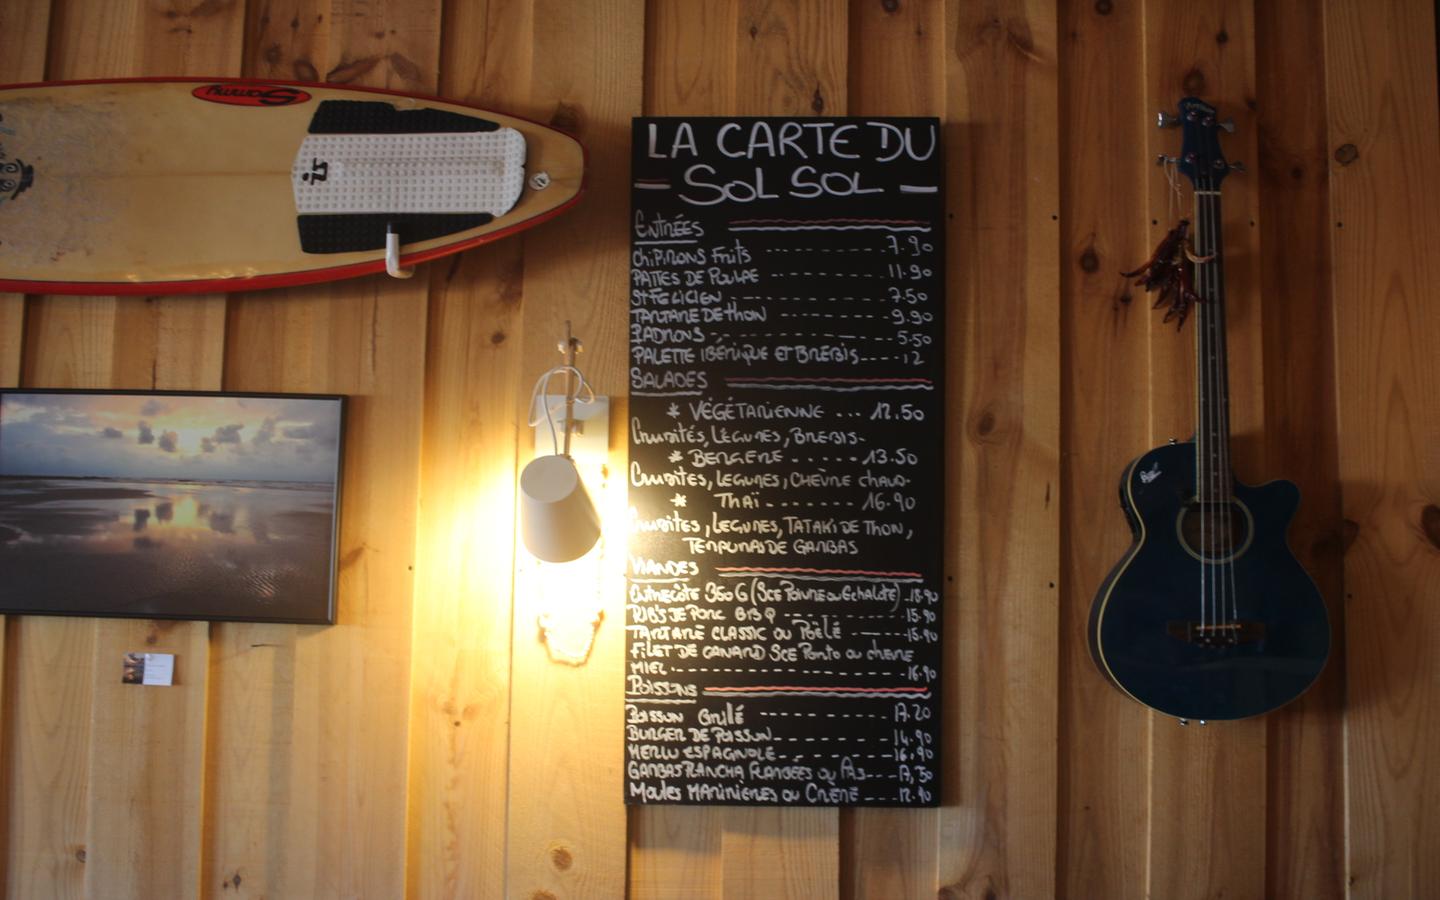 Sommy
LA CARTE DU
SOL SOL
ENTRÉES
CHIPIRONS FRITS ---------- 7.90
PATTES DE POULPE -------- 11.90
ST FELICIEN --------- 7.50
TARTARE DE THON --------- 9.90
PADRONS ------------- 5.50
PALETTE IBÉRIQUE ET BREBIS---- 12
SALADES
* VÉGÉTARIENNE ... 12.50
CRUDITÉS, LÉGUMES, BREBIS-
* BERGERE ----- 13.50
CRUDITES, LEGUMES, CHÈVRE CHAUD-
* THAÏ ------- 16.90
CRUDITES, LEGUMES, TATAKI DE THON,
TEMPURAS DE GAMBAS
VIANDES
ENTRECÔTE 350G (SCE POIVRE OU ECHALOTE) - 18.90
RIB'S DE PORC BBQ ----------- 15.90
TARTARE CLASSIC OU POÊLÉ ------ 15.90
FILET DE CANARD SCE PORTO OU CHEVRE
MIEL ---------------- 16.90
POISSONS
POISSON GRILLÉ ---------- 17.20
BURGER DE POISSON---------- 14.90
MERLU ESPAGNOLE---------- 16.90
GAMBAS PLANCHA FLAMBÉES OU PAS---
MOULES MARINIERES OU CRÈME --- 12.90